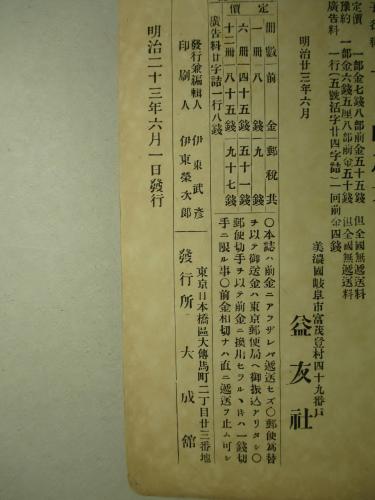 定價 一部金七錢八部前金五十五錢 但全國無遞送料
豫約 一部金六錢五厘八部前金五十錢 但全國無遞送料
廣告料 一行(五號活字廿四字詰)一回前金四錢
明治廿三年六月
美濃國岐阜市富茂登村四十九番戶
益友社
定價
冊數 前金 郵稅共
一冊 八錢 九錢
六冊 四十五錢 五十一錢
十二冊 八十五錢 九十七錢
廣告料廿字詰一行八錢
〇本誌ハ前金ニアラザレバ遞送セズ〇郵便爲替
ヲ以テ御送金ハ東京郵便局ヘ御振込アリタシ〇
郵便切手ヲ以テ前金ニ換用セラルヽトキハ一錢切
手ニ限ル事〇前金相切ナハ直ニ遞送ヲ止ム可シ
發行兼編輯人 伊東武彥
印刷人 伊東榮次郎
東京日本橋區大傳馬町二丁目廿三番地
發行所 大成館
明治二十三年六月一日發行